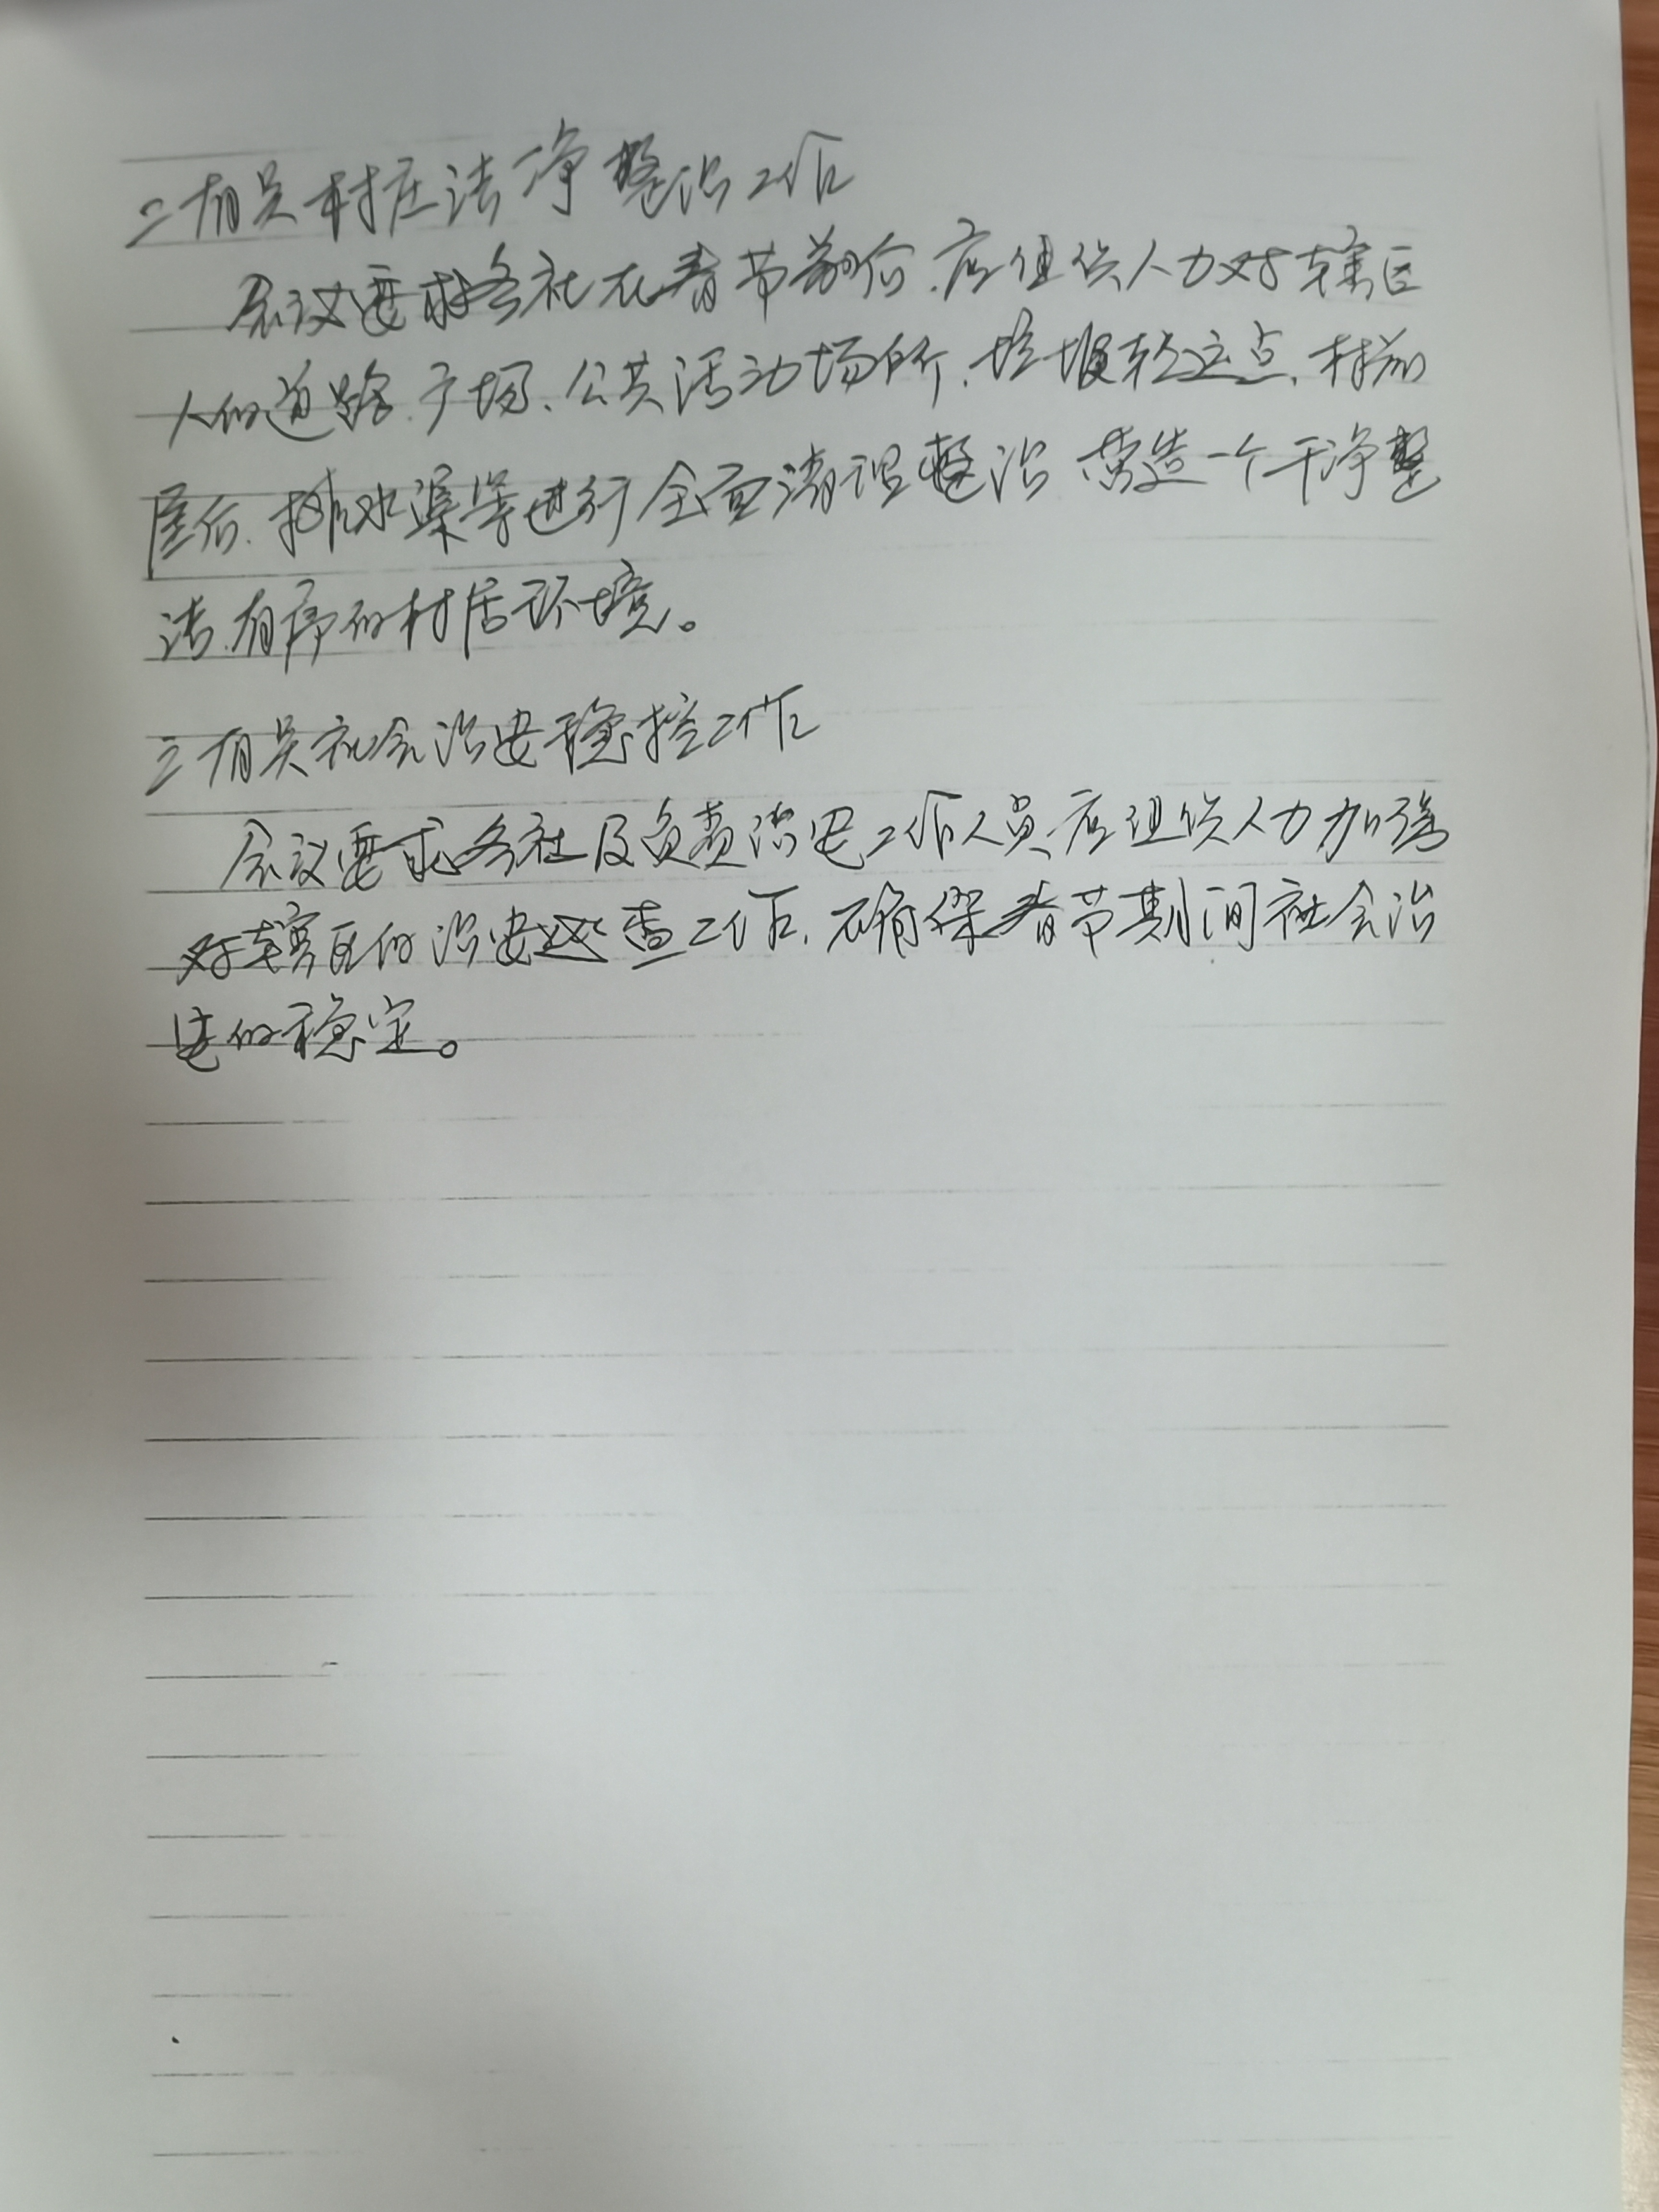 二有关村庄洁净整治工作
会议要求各社在春节前后.应组织人力对辖区
人的道路.广场、公共活动场所、垃圾转运点、村前
屋后、排水渠等进行全面清理整治 营造一个干净整
洁.有序的村居环境。
三有关社会治安稳控工作
会议要求各社及负责治安工作人员、应组织人力加强
对辖区的治安巡查工作.确保春节期间社会治
安的稳定。